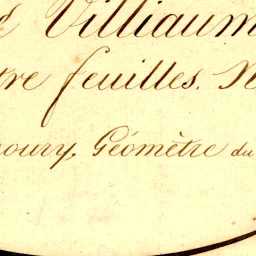 Villiaum
tre feuilles. N
oury, Géomètre du